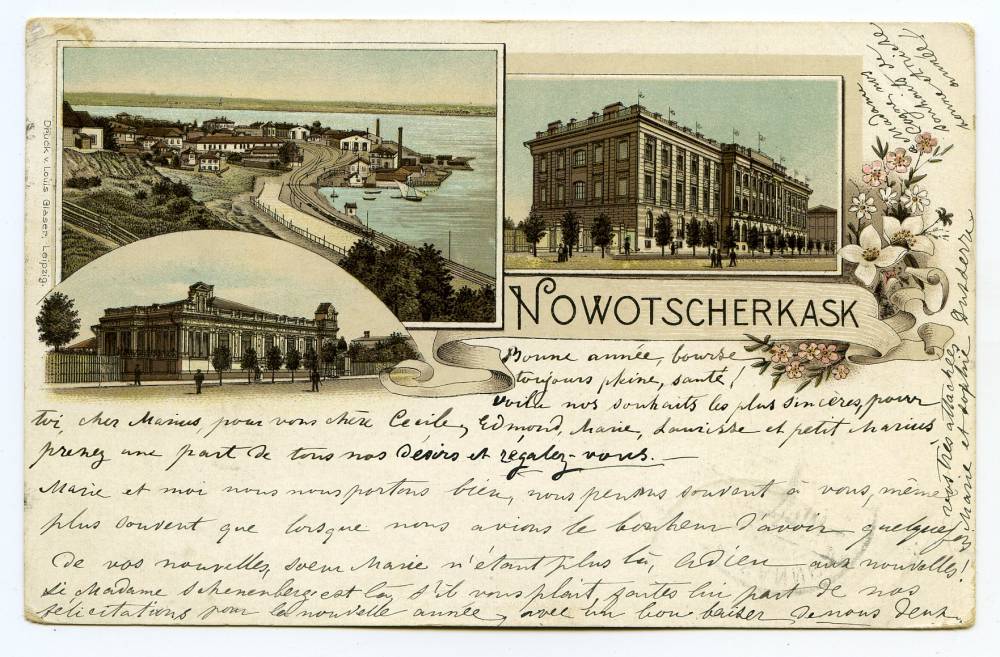 Druck v. Louis Glaser, Leipzig.
NOWOTSCHERKASK
Bonne année, bourse
toujours pleine, santé!
Voilà nos souhaits les plus sincères, pour
toi, cher Marius, pour vous chère Cecile, Edmond, Marie, et petit Marius
prenez une part de tous nos désirs et régalez-vous.—
Marie et moi nous nous portons bien, nous pensons souvent à vous, même
plus souvent que lorsque nous avions le bonheur d'avoir quelquefois
de vos nouvelles, soeur Marie n'étant plus là, adieu aux nouvelles!
Si Madame est là, s'il vous plait, faites lui part de nos
félicitations pour la nouvelle année, avec un bon baiser de nous deux
vos très attachées
Marie et Sophie
Madame
nos
souhaits de
bonne et
année!